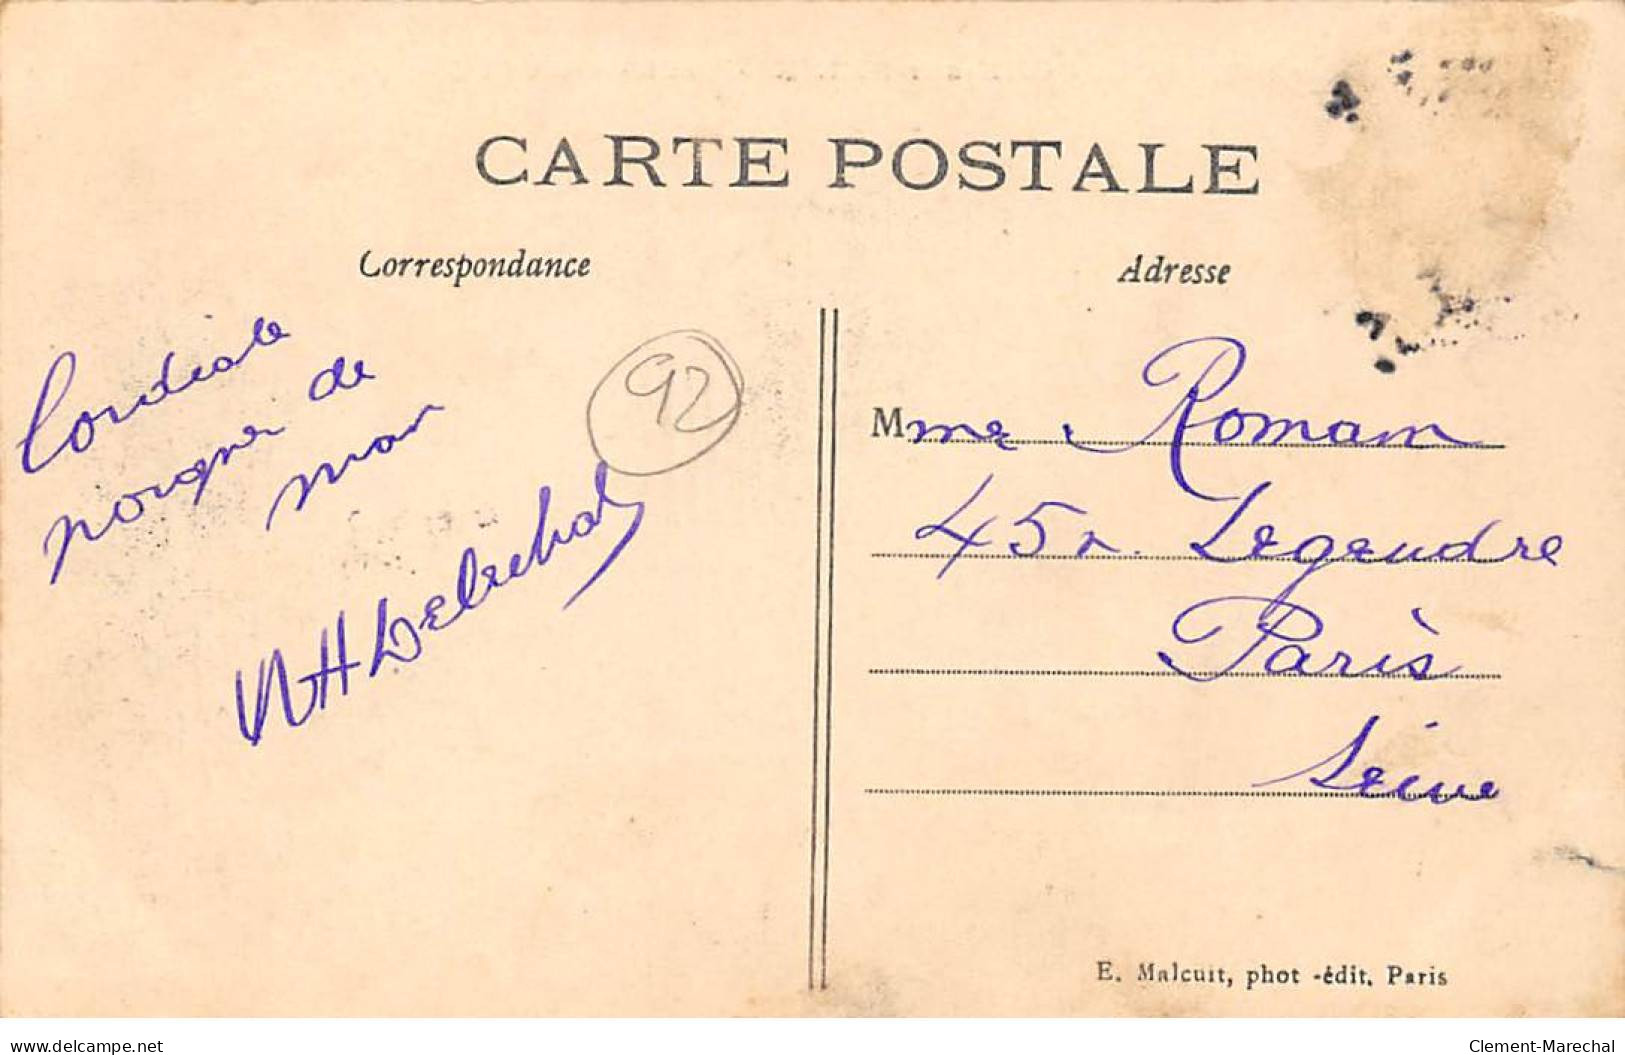 CARTE POSTALE
Correspondance
Adresse
Cordiale
poigne de
main
92
Mme Romain
45 r. Legendre
Paris
Seine
E. Malcuit, phot -édit. Paris
delcampe.net
Clement-Marechal